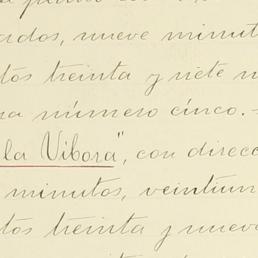 ados, nueve minut
tos treinta y siete m
na número cinco.-
la Víbora", con direcc
minutos, veintiun
tos treinta y nueve